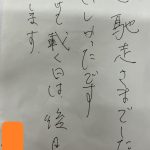 馳走さまでした
いしかったです
せて戴く日は後日
します